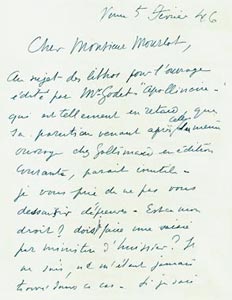 Vence 5 Février 46
Cher Monsieur Mourlot,
Au sujet des lithos pour l'ouvrage
édité par Mr Godet "Apollinaire"
qui est tellement en retard que
sa parution venant après celle du même
ouvrage chez Gallimard en édition
courante, paraît inutile -
je vous prie de ne pas vous
dessaisir d'épreuves - Est-ce mon
droit? dois-je faire une
par ministère d'huissier? Je
ne sais, ne m'étant jamais
trouvé dans ce cas - Si je